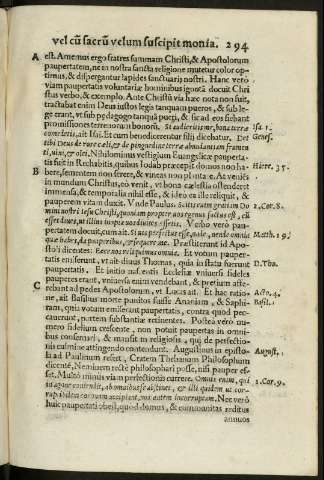 vel cũ sacrũ velum suscipit monia. 294
A est. Amemus ergo fratres summam Christi, & Apostolorum
paupertatem, ne in nostra sancta religione mutetur color op-
timus, & dispergantur lapides sanctuarij nostri. Hanc verò
viam paupertatis voluntariæ hominibus ignotã docuit Chri
stus verbo, & exemplo. Ante Christũ via hæc nota non fuit,
tractabat enim Deus iustos legis tanquam pueros, & sub le-
ge erant, vt sub pędagogo tanquã pueri, & sic ad eos fiebant
promissiones terrenorum bonorũ. Si audieritis me, bona terræ
comedetis, ait Isai. Et cum benedicerentur filij dicebat. Det
tibi Deus de rore cæli, & de pinguedine terræ abundantiam frumen
ti, vini, & olei. Nihilominus vestigium Euangelicæ pauperta-
tis fuit in Rechabitis, quibus Iodab præcepit domos non ha-
B bere, sementem non serere, & vineas non plantare. At venies
in mundum Christus, eò venit, vt bona cælestia ostenderet
immensa, & temporalia nihil esse, & ideò ea ille reliquit, &
pauperem vitam duxit. Vnde Paulus. Scitis enim gratiam Do
mini nostri Iesu Christi, quoniam propter vos egenus factus est, cũ
esset diues, vt illius inopia vos diuites essetis. Verbo verò pau-
pertatem docuit, cum ait. Si vis perfectus esse, vade, vende omnia
quæ habes, da pauperibus, & sequere me. Præstiterunt id Apo-
stoli dicentes: Ecce nos reliquimus omnia. Et votum pauper-
tatis emiserunt, vt ait diuus Thomas, quia in statu fuerunt
paupertatis. Et initio nascentis Ecclesiæ vniuersi fideles
pauperes erant, vniuersa enim vendebant, & pretium affe-
C rebant ad pedes Apostolorum, vt Lucas ait. Et hac ratio-
ne, ait Basilius morte punitos fuisse Ananiam, & Saphi-
ram, quia votum emiserant paupertatis, contra quod pec-
cauerunt, partem substantiæ retinentes. Postea verò nu-
mero fidelium crescente, non potuit paupertas in omni-
bus conseruari, & mansit in religiosis, qui de perfectio-
nis culmine attingendo contendunt. Augustinus in episto-
la ad Paulinum refert, Cratem Thebanum Philosophum
dicentẽ, Neminem rectè philosophari posse, nisi pauper es-
set. Multò minus viam perfectionis currere. Omnis enim, qui
in agone contendit, ab omnibus se abstinet, & illi quidem vt cor-
ruptibilem coronam accipiant, nos autem incorruptam. Nec verò
huic paupertati obest, quod domus, & communitas reditus
annuos
Isa 1.
Genes.
Hiere. 35.
2. Cor. 8.
Matth. 19.
D. Tho.
Acto. 4.
Basil.
August.
1. Cor. 9.